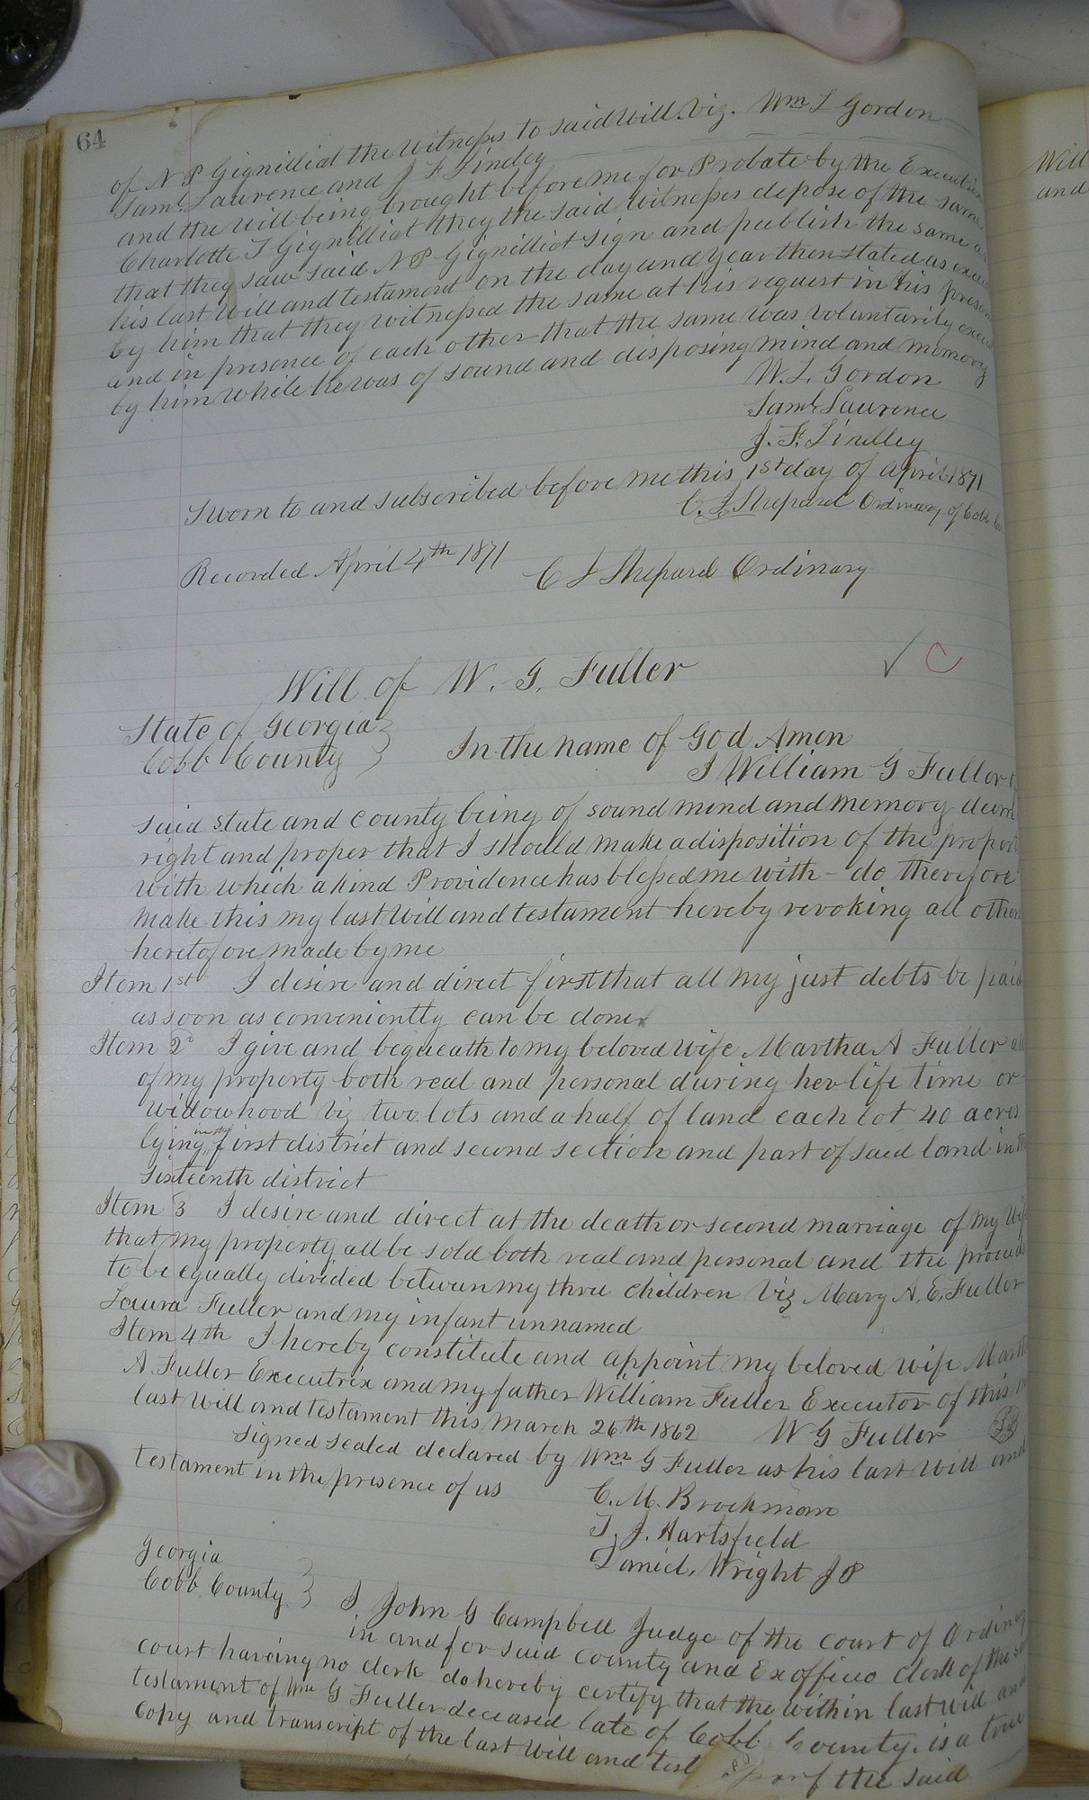 64
of N P Gignilliat the Witnesses to said Will. Viz. Wm L Gordon
Saml. Laurence and J F Lindley
and the will being brought before me for Probate by the
Charlotte T Gignilliat they the said witnesses depose of the same
that they saw said N P Gignilliat sign and publish the same as
his last Will and testament on the day and year then stated as
by him that they witnessed the same at his request in his
and in presence of each other that the same was voluntarily
by him while he was of sound and disposing mind and memory
W. L. Gordon
Saml Laurence
J. F. Lindley
Sworn to and subscribed before me this 1st day of April 1871
C. J. Shepard Ordinary of Cobb
Recorded April 4th 1871
C J Shepard Ordinary
Will of W. G. Fuller
State of Georgia
Cobb County
In the name of God Amen
I William G Fuller
said state and county being of sound mind and memory deem
right and proper that I should make a disposition of the
with which a kind Providence has blessed me with - do therefore
make this my last Will and testament hereby revoking all
heretofore made by me
Item 1st I desire and direct first that all my just debts be paid
as soon as conveniently can be done
Item 2d I give and bequeath to my beloved wife Martha A Fuller
of my property both real and personal during her life time or
widowhood Viz two lots and a half of land each lot 40 acres
lying in the first district and second section and part of said land in
Sixteenth district
Item 3 I desire and direct at the death or second marriage of my
that my property all be sold both real and personal and the proceeds
to be equally divided between my three children Viz Mary A. E. Fuller
Laura Fuller and my infant unnamed
Item 4th I hereby constitute and appoint my beloved wife
A Fuller Executrix and my father William Fuller Executor of this
last Will and testament this March 26th 1862 W G Fuller
Signed sealed declared by Wm G Fuller as his last Will and
testament in the presence of us
C. M. Brockman
T. J. Hartsfield
Daniel Wright J P
Georgia
Cobb County
I John G Campbell Judge of the court of
in and for said County and Ex officio Clerk of the
court having no clerk do hereby certify that the within last Will and
testament of Wm G Fuller deceased late of Cobb County, is a true
Copy and transcript of the last Will and of the said
Will
and